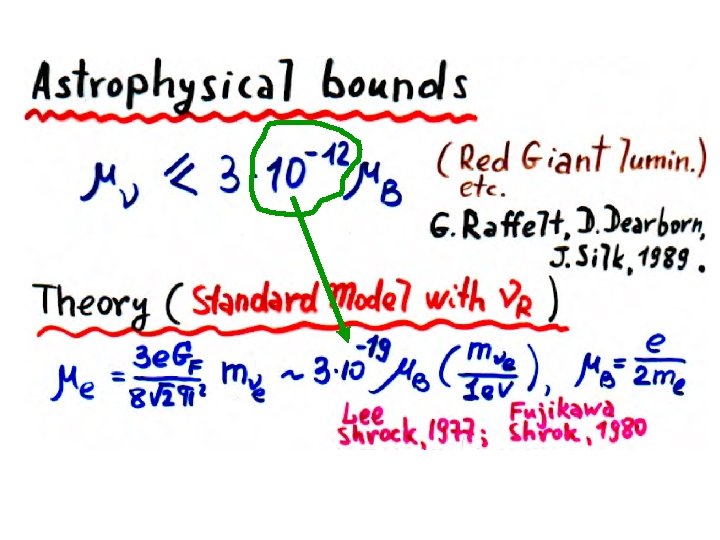 Astrophysical bounds
μ_ν ≤ 3·10^-12 μ_B (Red Giant lumin.)
etc.
G. Raffelt, D. Dearborn,
J. Silk, 1989.
Theory (Standard Model with ν_R)
μ_e = 3eG_F / 8√2π² m_ν_e ~ 3·10^-19 μ_B (m_ν_e / 1eV), μ_B = e / 2m_e
Lee Fujikawa
Shrock, 1977; Shrok, 1980